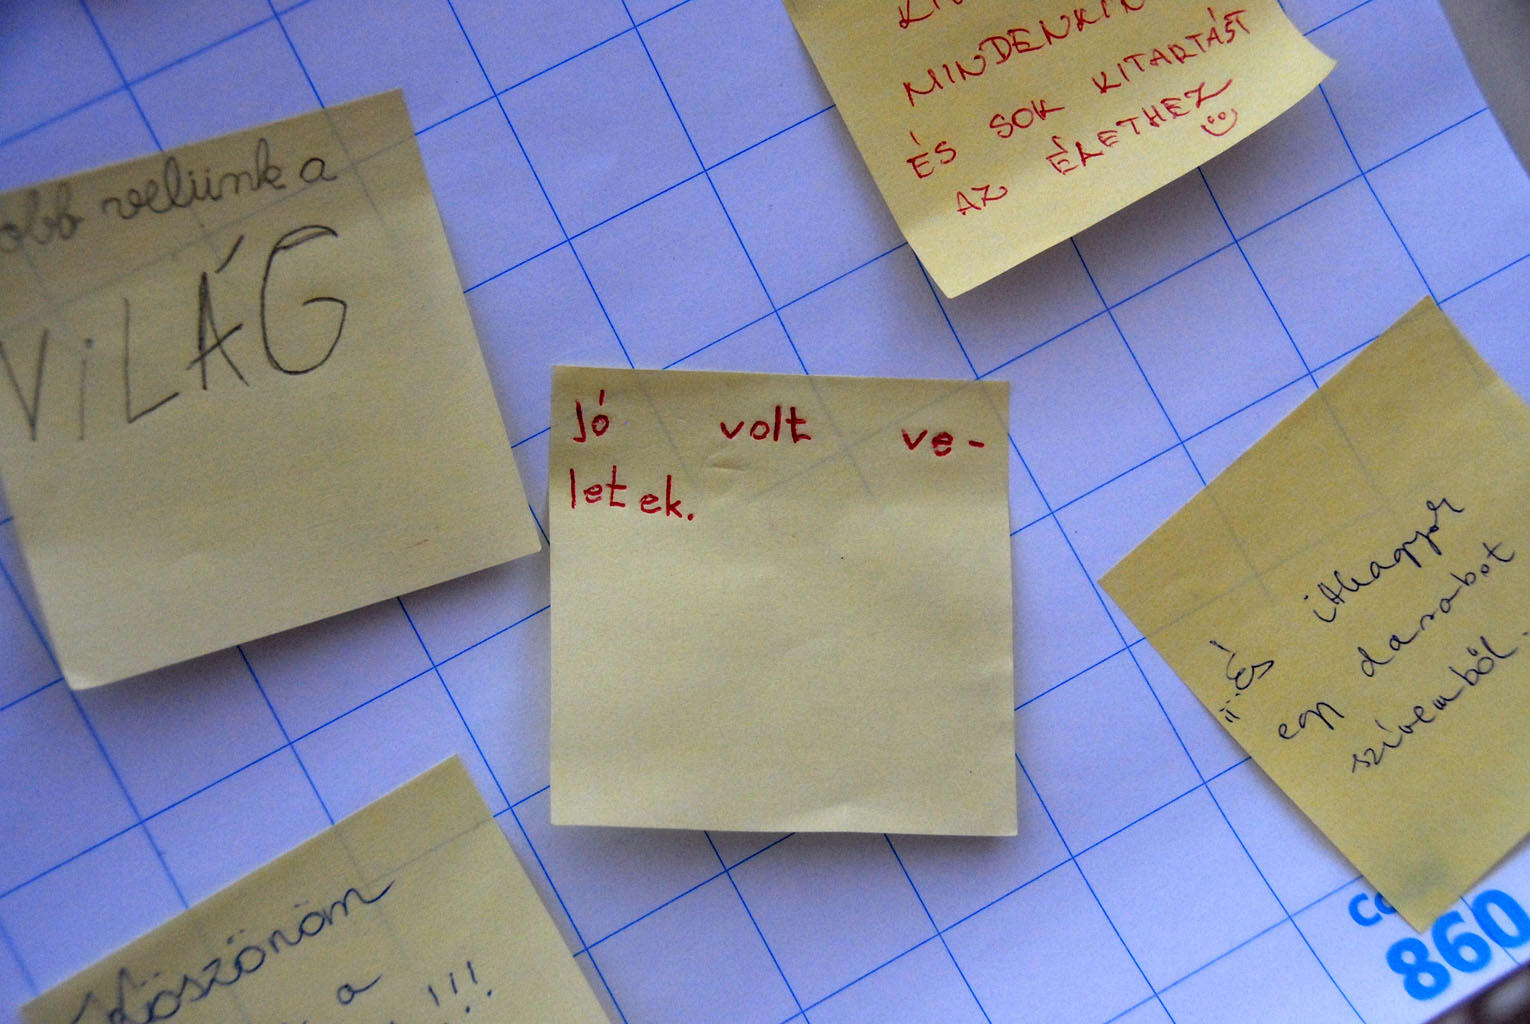 obb velünk a
VILÁG
MINDENKIN
ÉS SOK KITARTÁST
AZ ÉLETHEZ
Jó volt ve-
letek.
És itthagyok
egy darabot
szívemből.
Köszönöm
a
!!!
860